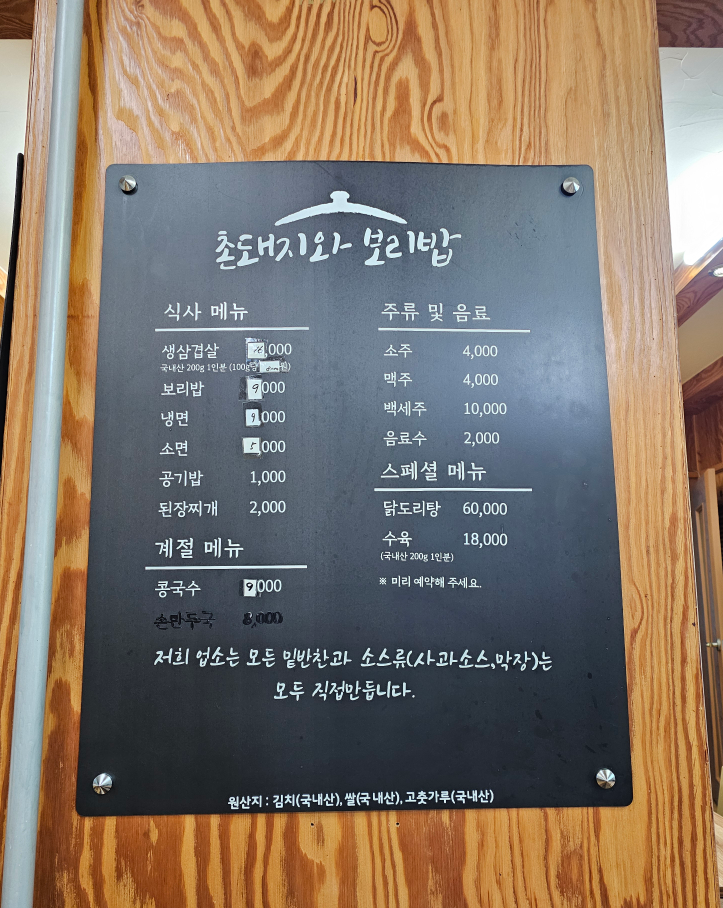 촌돼지와 보리밥
식사 메뉴
생삼겹살 ,000
국내산 200g 1인분 (100g당 원)
보리밥 9,000
냉면 9,000
소면 5,000
공기밥 1,000
된장찌개 2,000
계절 메뉴
콩국수 9,000
손만두국 8,000
주류 및 음료
소주 4,000
맥주 4,000
백세주 10,000
음료수 2,000
스페셜 메뉴
닭도리탕 60,000
수육 18,000
(국내산 200g 1인분)
※ 미리 예약해 주세요.
저희 업소는 모든 밑반찬과 소스류(사과소스,막장)는
모두 직접만듭니다.
원산지 : 김치(국내산), 쌀(국내산), 고춧가루(국내산)